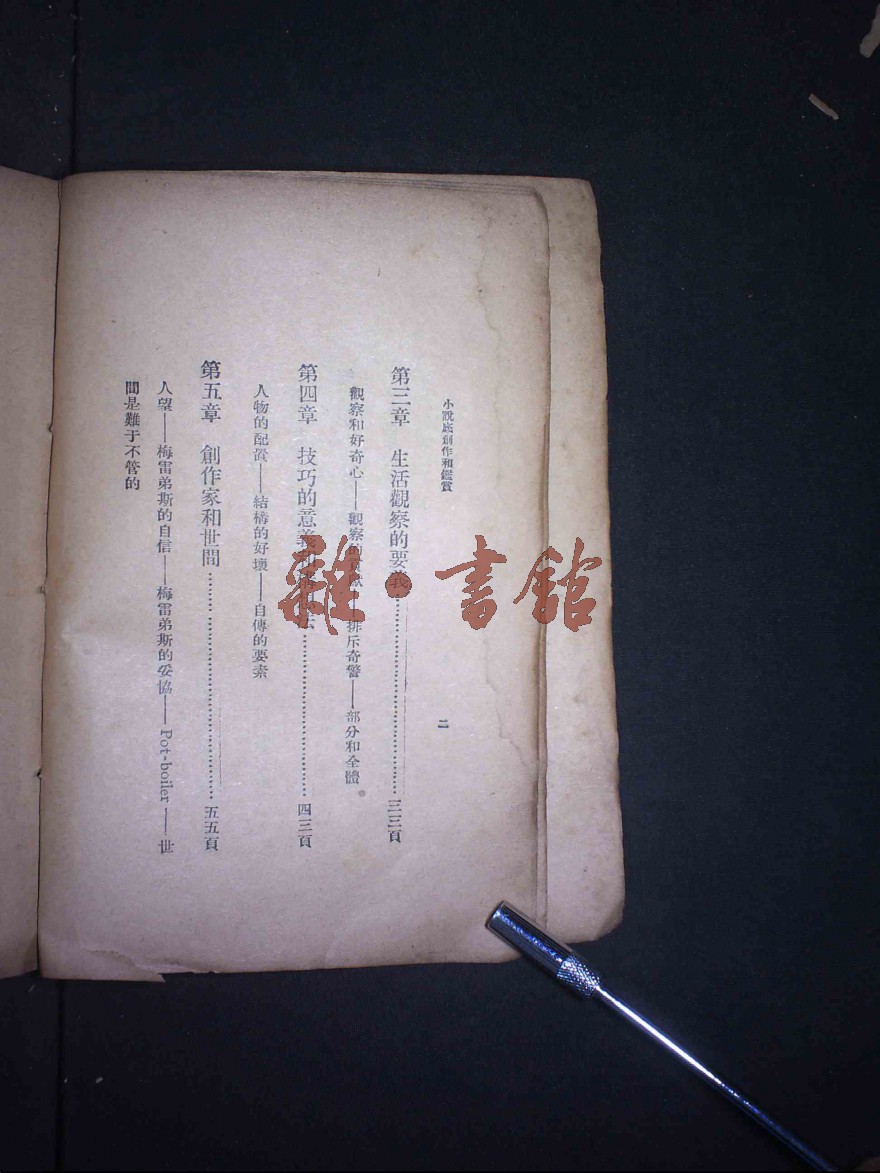 小說底創作和鑑賞
二
第三章　生活觀察的要義……三三頁
觀察和好奇心——觀察的——排斥奇警——部分和全體。
第四章　技巧的意義和……四三頁
人物的配置——結構的好壞——自傳的要素
第五章　創作家和世間……五五頁
人望——梅雷弟斯的自信——梅雷弟斯的妥協——Pot-boiler——世
間是難于不管的
雜·書館